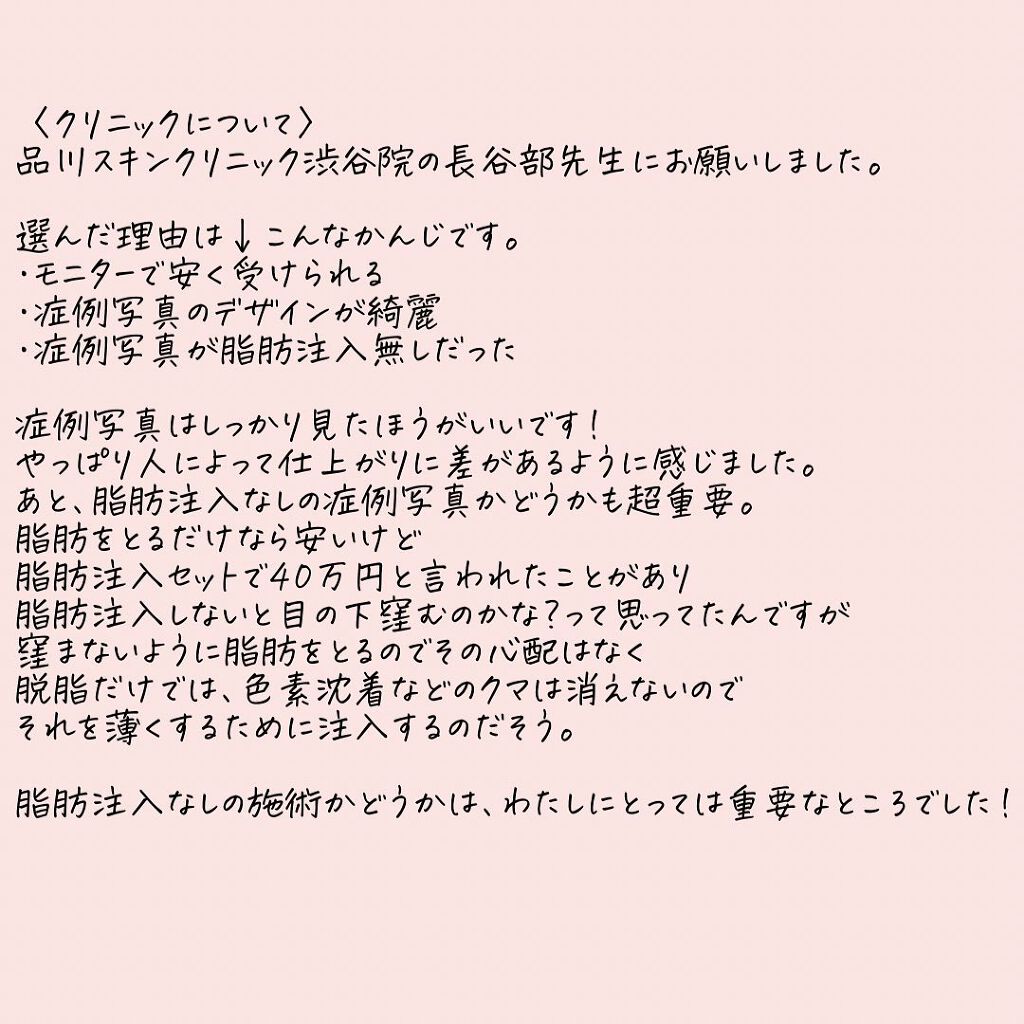 〈クリニックについて〉
品川スキンクリニック渋谷院の長谷部先生にお願いしました。
選んだ理由は↓こんなかんじです。
・モニターで安く受けられる
・症例写真のデザインが綺麗
・症例写真が脂肪注入無しだった
症例写真はしっかり見たほうがいいです!
やっぱり人によって仕上がりに差があるように感じました。
あと、脂肪注入なしの症例写真かどうかも超重要。
脂肪をとるだけなら安いけど
脂肪注入セットで40万円と言われたことがあり
脂肪注入しないと目の下窪むのかな?って思ってたんですが
窪まないように脂肪をとるのでその心配はなく
脱脂だけでは、色素沈着などのクマは消えないので
それを薄くするために注入するのだそう。
脂肪注入なしの施術かどうかは、わたしにとっては重要なところでした!